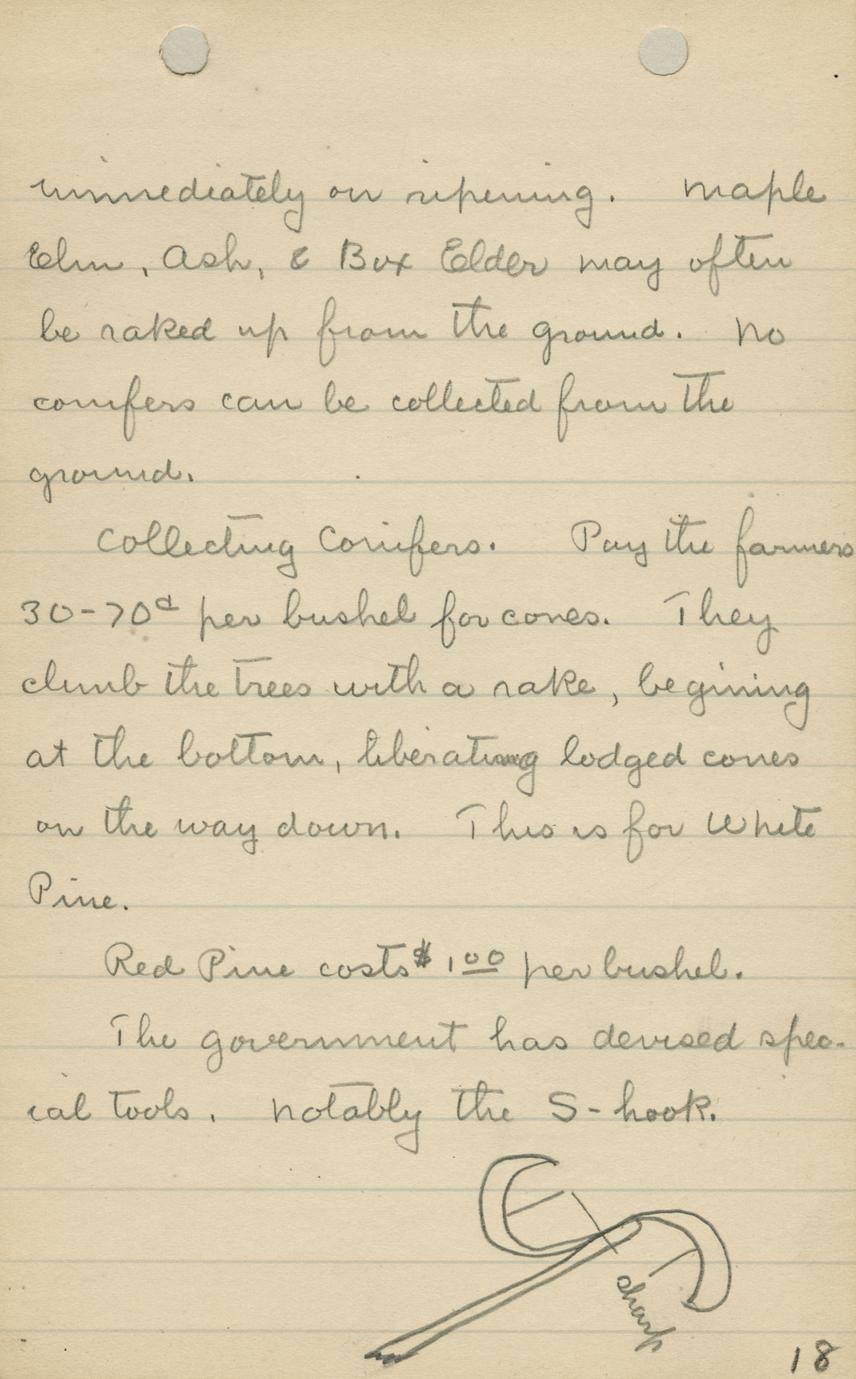 immediately on ripening. Maple
Elm, Ash, & Box Elder may often
be raked up from the ground. No
conifers can be collected from the
ground.
Collecting Conifers. Pay the farmers
30-70¢ per bushel for cones. They
climb the trees with a rake, begining
at the bottom, liberating lodged cones
on the way down. This is for White
Pine.
Red Pine costs $1.00 per bushel.
The government has devised spec-
ial tools, notably the S-hook.
sharp
18